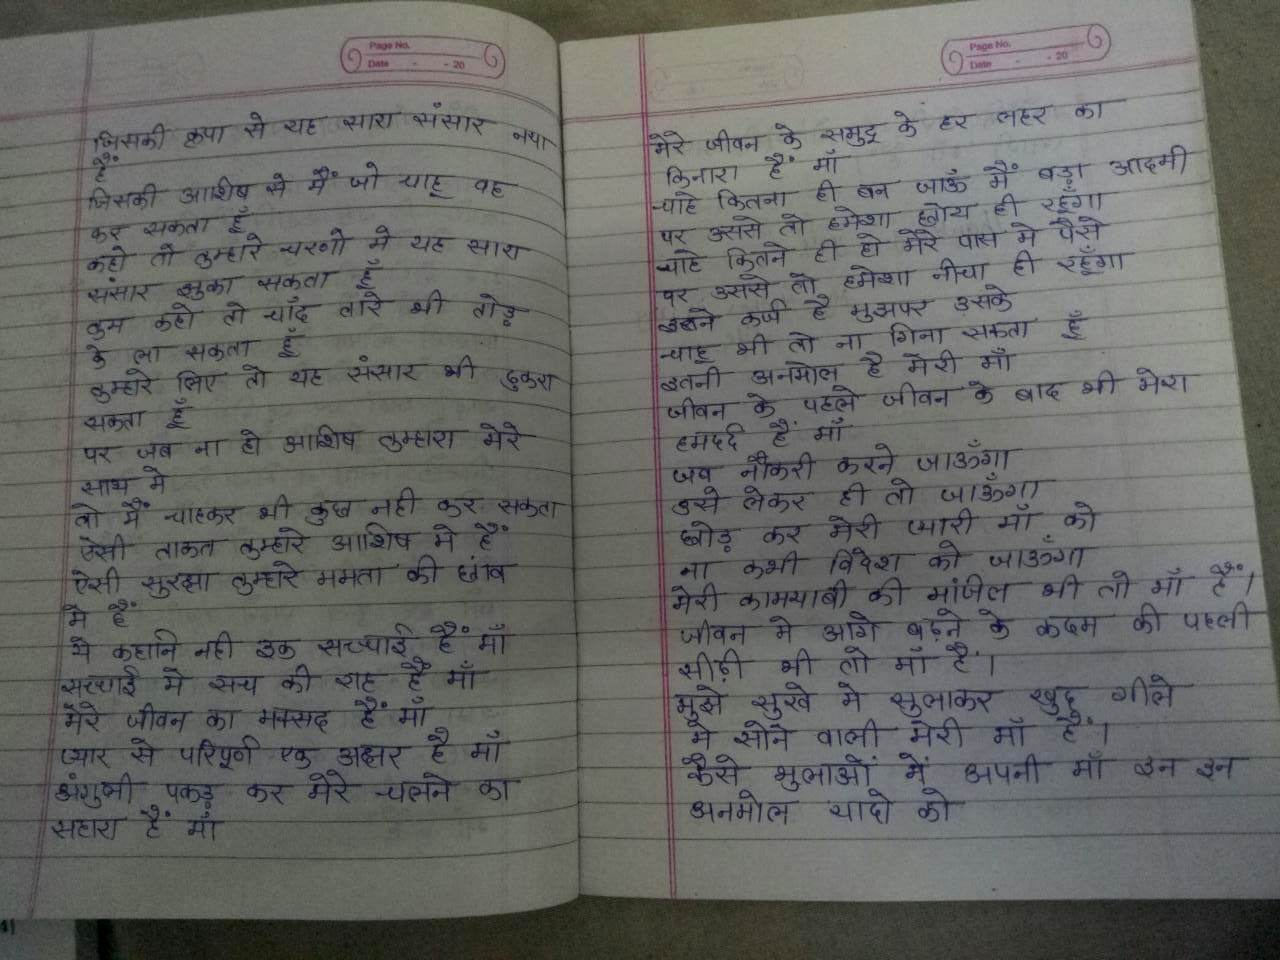 Page No.
Date - - 20
जिसकी कृपा से यह सारा संसार नया
हैं
जिसकी आशिष से मैं जो चाहू वह
कर सकता हूँ
कहो तो तुम्हारे चरणो मे यह सारा
संसार झुका सकता हूँ
तुम कहो तो चाँद तारे भी तोड़
के ला सकता हूँ
तुम्हारे लिए तो यह संसार भी ठुकरा
सकता हूँ
पर जब ना हो आशिष तुम्हारा मेरे
साथ मे
तो मैं चाहकर भी कुछ नही कर सकता
ऐसी ताकत तुम्हारे आशिष मे हैं
ऐसी सुरक्षा तुम्हारे ममता की छांव
मे हैं
ये कहानि नही इक सच्चाई हैं माँ
सच्चाई मे सच की राह हैं माँ
मेरे जीवन का मक्सद हैं माँ
प्यार से परिपूर्ण एक अक्षर है माँ
अंगुली पकड़ कर मेरे चलने का
सहारा हैं माँ
Page No.
Date - - 20
मेरे जीवन के समुद्र के हर लहर का
किनारा हैं माँ
चाहे कितना ही बन जाऊँ मैं बड़ा आदमी
पर उससे तो हमेशा छोटा ही रहूँगा
चाहे कितने ही हो मेरे पास मे पैसे
पर उससे तो हमेशा नीचा ही रहूँगा
इतने कर्ज है मुझपर उसके
चाहू भी तो ना गिना सकता हूँ
इतनी अनमोल है मेरी माँ
जीवन के पहले जीवन के बाद भी मेरा
हमदर्द हैं माँ
जब नौकरी करने जाऊँगा
उसे लेकर ही तो जाऊँगा
छोड़ कर मेरी प्यारी माँ को
ना कभी विदेश को जाऊँगा
मेरी कामयाबी की मांजिल भी तो माँ हैं।
जीवन मे आगे बढ़ने के कदम की पहली
सीढ़ी भी तो माँ हैं।
मुझे सुखे मे सुलाकर खुद गीले
मे सोने वाली मेरी माँ हैं।
कैसे भुलाओं में अपनी माँ इन इन
अनमोल यादो को